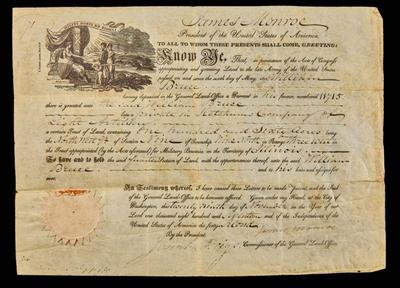 James Monroe
President of the United States of America
TO ALL TO WHOM THESE PRESENTS SHALL COME, GREETING:
Know Ye, That, in pursuance of the Acts of Congress
appropriating and granting Land to the late Army of the United States
passed on and since the sixth day of May 1812 William
Bruce
having deposited in the General Land-Office a Warrant in his favour, numbered
there is granted unto the said William Bruce
late a private in Company of
Light Artillery
a certain Tract of Land, containing One hundred and Sixty acres being
the North West qr of Section of Township Nine North in Range Three West in
the Tract appropriated (by the Acts aforesaid) for Military Bounties in the Territory of Illinois
To have and to hold the said Quarter Section of Land, with the appurtenances thereof, unto the said William
Bruce and to his heirs and assigns for
ever.
In Testimony whereof, I have caused these Letters to be made Patent, and the Seal
of the General Land-Office to be hereunto affixed. Given under my Hand, at the City of
Washington, this twenty Ninth day of November in the Year of our
Lord one thousand eight hundred and and of the Independence of the
United States of America the forty
By the President James Monroe
Josiah Meigs Commissioner of the General Land-Office.